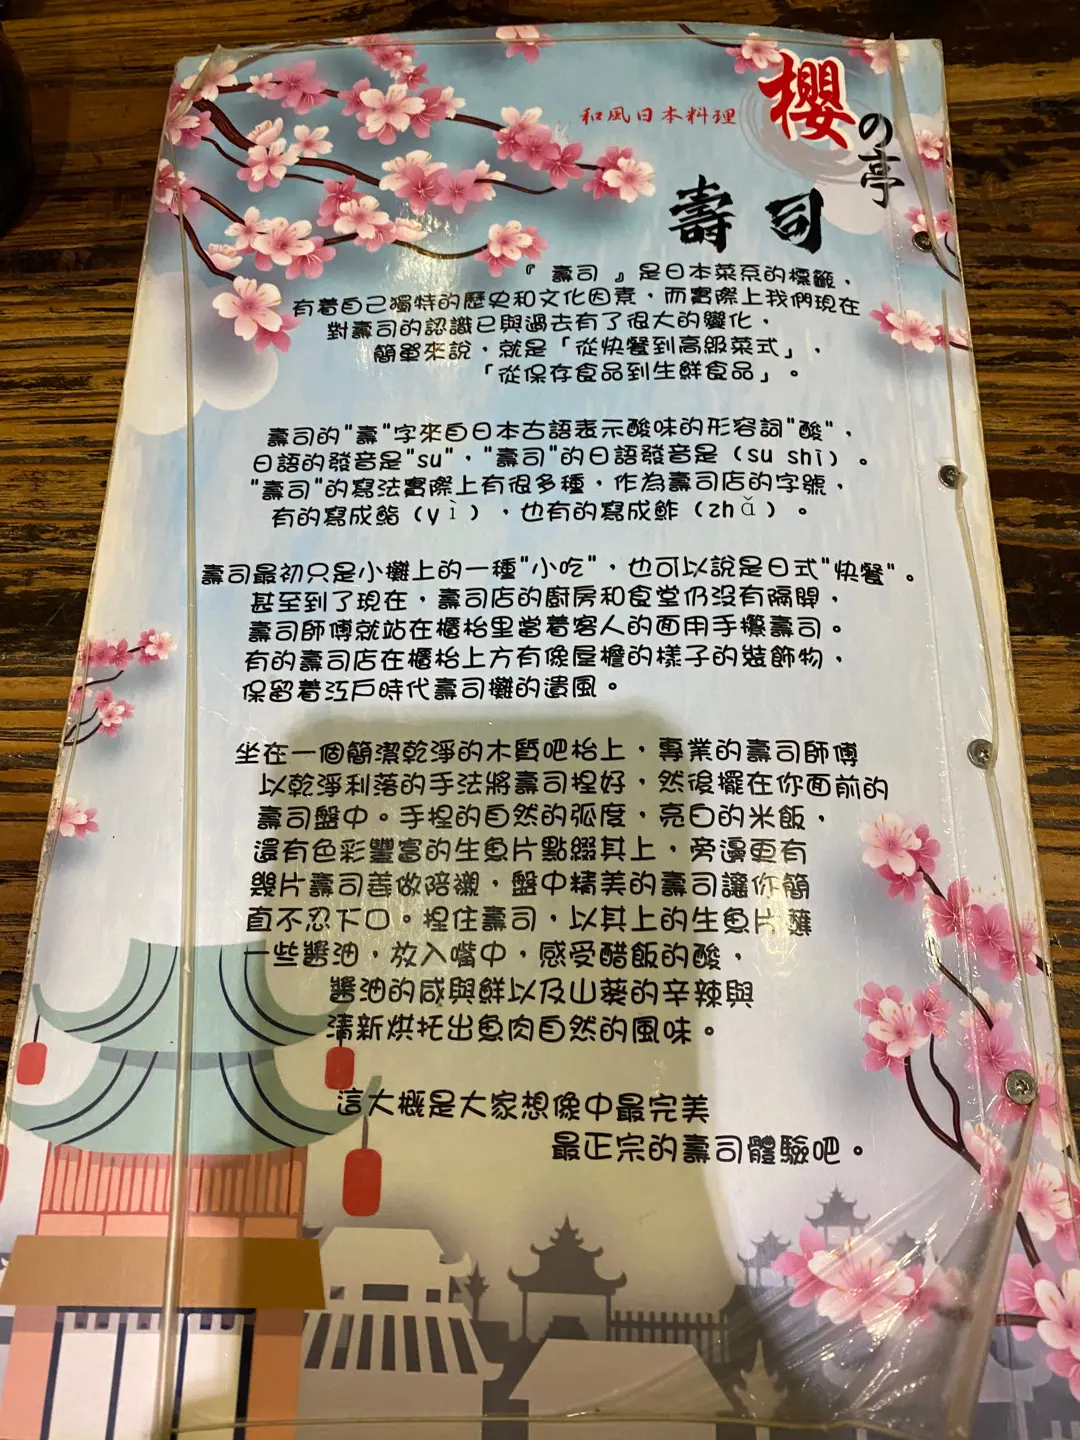 和風日本料理
櫻の亭
壽司
『 壽司 』是日本菜系的標籤，
有着自己獨特的歷史和文化因素，而實際上我們現在
對壽司的認識已與過去有了很大的變化，
簡單來說，就是「從快餐到高級菜式」，
「從保存食品到生鮮食品」。
壽司的"壽"字來自日本古語表示酸味的形容詞"酸"，
日語的發音是"su"，"壽司"的日語發音是（su shi）。
"壽司"的寫法實際上有很多種，作為壽司店的字號，
有的寫成鮨（yì），也有的寫成鮓（zhǎ）。
壽司最初只是小攤上的一種"小吃"，也可以說是日式"快餐"。
甚至到了現在，壽司店的廚房和食堂仍沒有隔開，
壽司師傅就站在櫃枱里當着客人的面用手攥壽司。
有的壽司店在櫃枱上方有像屋檐的樣子的裝飾物，
保留着江戶時代壽司攤的遺風。
坐在一個簡潔乾淨的木質吧枱上，專業的壽司師傅
以乾淨利落的手法將壽司捏好，然後擺在你面前的
壽司盤中。手捏的自然的弧度，亮白的米飯，
還有色彩豐富的生魚片點綴其上，旁邊更有
幾片壽司姜做陪襯，盤中精美的壽司讓你簡
直不忍下口。捏住壽司，以其上的生魚片蘸
一些醬油，放入嘴中，感受醋飯的酸，
醬油的咸與鮮以及山葵的辛辣與
清新烘托出魚肉自然的風味。
這大概是大家想像中最完美
最正宗的壽司體驗吧。